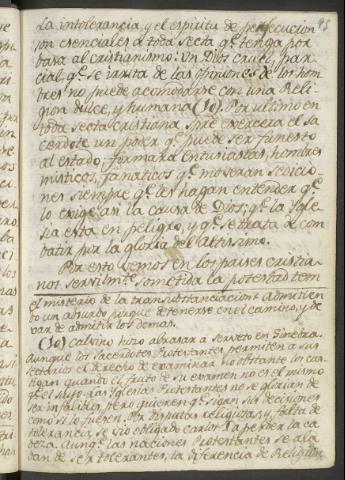 la intolerancia, y el espiritu de persecucion
son esenciales a toda secta qe tenga por
basa al cristianismo: Un Dios cruel, par-
cial, qe se irrita de las opiniones de los hom-
bres no puede acomodarse con una Reli-
gion dulce, y humana (10). Por ultimo en
toda secta cristiana spre exercera el sa-
cerdote un poder qe puede ser funesto
al estado; formara entusiastas, hombres
misticos, fanaticos qe moveran sedicio-
nes siempre qe les hagan entender qe
lo exige asi la causa de Dios; qe la Igle-
sia está en peligro, y qe se trata de com-
batir por la gloria del Altisimo.
Por esto vemos en los paises cristia-
nos servilmte sometida la potestad tem
el misterio de la transubstanciacion: Admitien
do un absurdo porque detenerse en el camino, y de
xar de admitir los demas.
(10) Calvino hizo abrasar a Serveto en Ginebra.
Aunque los Sacerdotes Protestantes permiten a sus
sectarios el derecho de examinar no obstante los cas-
tigan quando el fruto de su examen no es el mismo
qe el suyo. Las Iglesias Protestantes no se glorian de
ser infalibles pero quieren qe sigan sus decisiones
como si lo fueren. Por disputas religiosas, y falta de
tolerancia, se vio obligado Carlos I a perder la ca-
beza. Aunqe las naciones Protestantes se ala-
ban de ser tolerantes, la diferencia de Religion